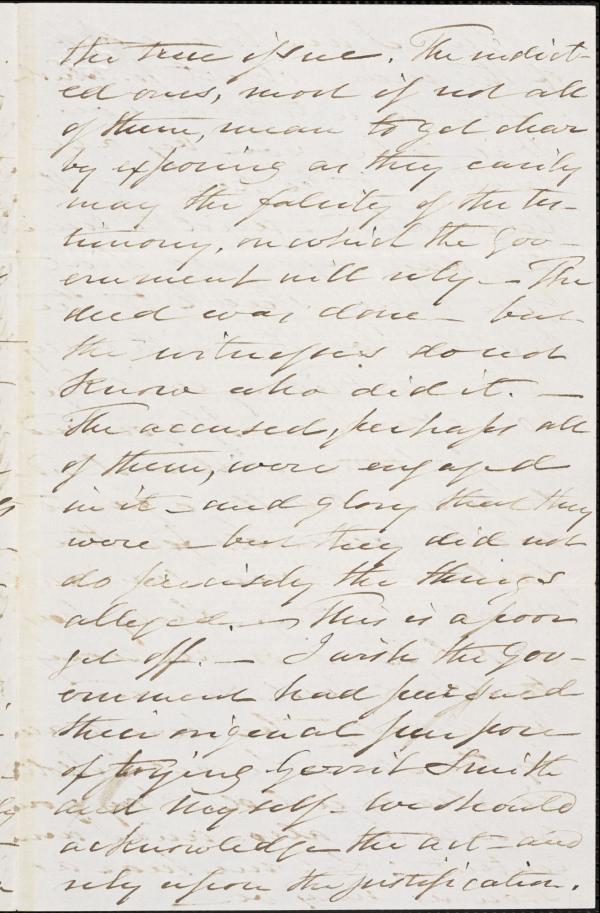 the true issue. The indict-
ed ones, most if not all
of them, mean to get clear
by exposing as they easily
may the falsity of the tes-
timony, on which the Gov-
ernment will rely — The
deed was done — but
the witnesses do not
know who did it. —
The accused, perhaps all
of them, were engaged
in it — and glory that they
were — but they did not
do precisely the things
alleged. — This is a poor
get off. — I wish the Gov-
ernment had pursued
their original purpose
of trying Gerrit Smith
and myself — We should
acknowledge the act — and
rely upon the justification.